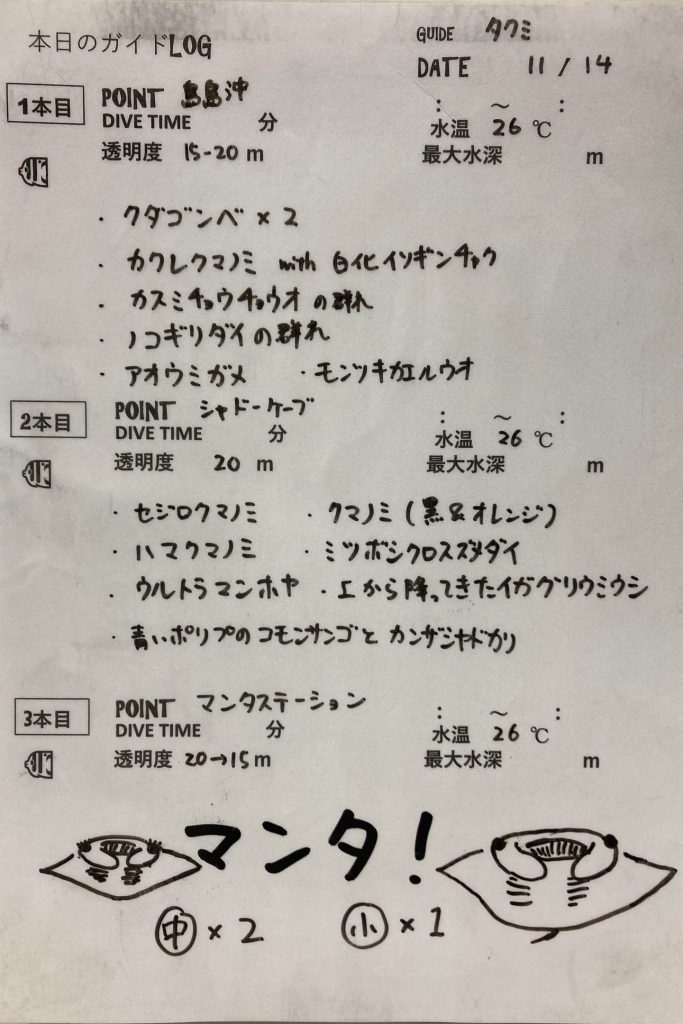 本日のガイドLOG
GUIDE タクミ
DATE 11 / 14
1本目
POINT 鳥島沖
DIVE TIME 分 : ～ :
水温 26 ℃
透明度 15-20 m 最大水深 m
・クダゴンベ × 2
・カクレクマノミ with 白化イソギンチャク
・カスミチョウチョウオ の群れ
・ノコギリダイ の群れ
・アオウミガメ ・モンツキカエルウオ
2本目
POINT シャドーケーブ
DIVE TIME 分 : ～ :
水温 26 ℃
透明度 20 m 最大水深 m
・セジロクマノミ ・クマノミ (黒&オレンジ)
・ハマクマノミ ・ミツボシクロスズメダイ
・ウルトラマンホヤ ・上から降ってきたイガグリウミウシ
・青いポリプのコモンサンゴと カンザシヤドカリ
3本目
POINT マンタステーション
DIVE TIME 分 : ～ :
水温 26 ℃
透明度 20→15 m 最大水深 m
マンタ!
中 × 2 小 × 1